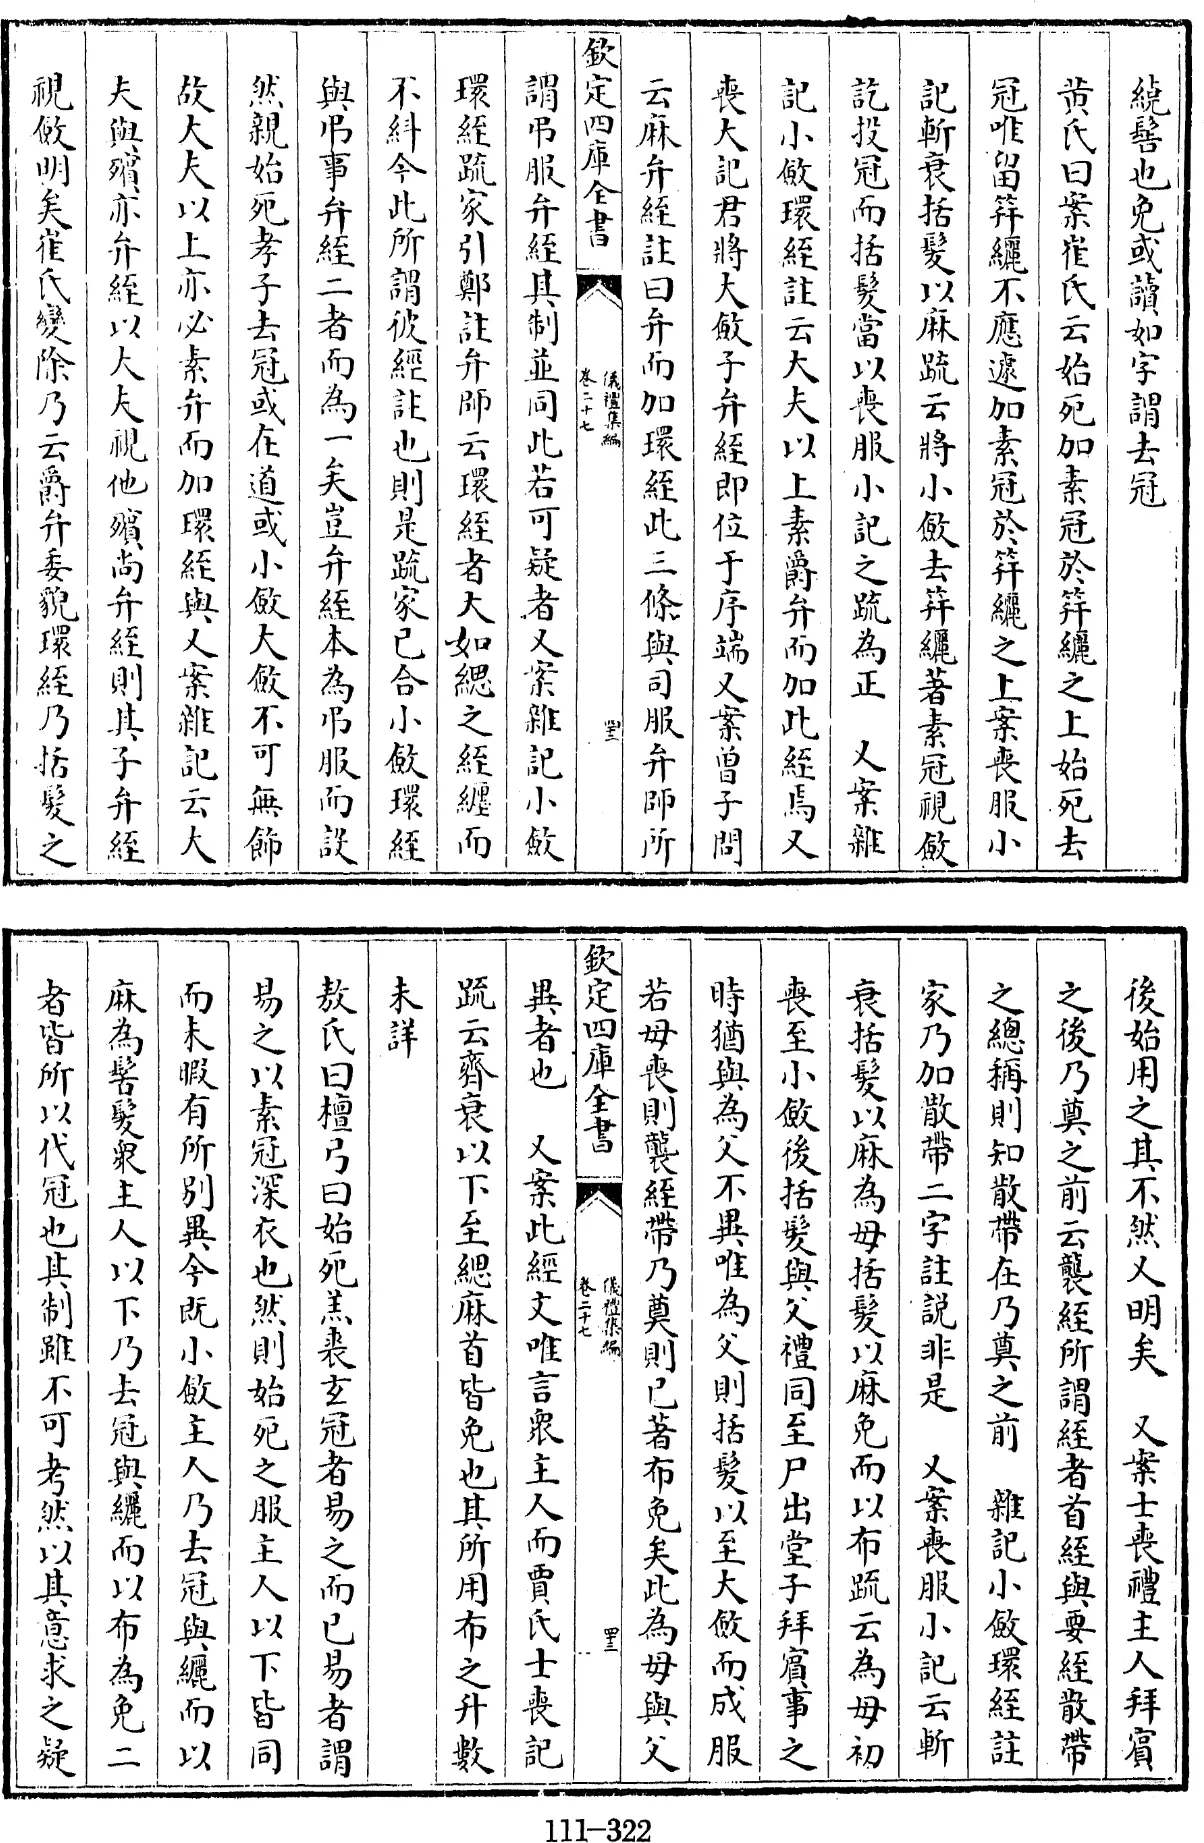 繞髻也免或讀如字謂去冠
黄氏曰案崔氏云始死加素冠於笄纚之上始死去
冠唯留笄纚不應遽加素冠於笄纚之上案喪服小
記斬衰括髮以麻疏云將小斂去笄纚著素冠視斂
訖投冠而括髮當以喪服小記之疏為正　又案雜
記小斂環絰註云大夫以上素爵弁而加此絰焉又
喪大記君將大斂子弁絰即位于序端又案曾子問
云麻弁絰註曰弁而加環絰此三條與司服弁師所
欽定四庫全書
儀禮集編
卷二十七
謂弔服弁絰其制並同此若可疑者又案雜記小斂
環絰疏家引鄭註弁師云環絰者大如緦之絰纏而
不糾今此所謂彼經註也則是疏家已合小斂環絰
與弔事弁絰二者而為一矣豈弁絰本為弔服而設
然親始死孝子去冠或在道或小斂大斂不可無飾
故大夫以上亦必素弁而加環絰與又案雜記云大
夫與殯亦弁絰以大夫視他殯尚弁絰則其子弁絰
視斂明矣崔氏變除乃云爵弁委貌環絰乃括髮之
後始用之其不然又明矣　又案士喪禮主人拜賓
之後乃奠之前云襲絰所謂絰者首絰與要絰散帶
之總稱則知散帶在乃奠之前　雜記小斂環絰註
家乃加散帶二字註説非是　又案喪服小記云斬
衰括髮以麻為母括髮以麻免而以布疏云為母初
喪至小斂後括髮與父禮同至尸出堂子拜賓事之
時猶與為父不異唯為父則括髮以至大斂而成服
若母喪則襲絰帶乃奠則已著布免矣此為母與父
欽定四庫全書
儀禮集編
卷二十七
異者也　又案此經文唯言衆主人而賈氏士喪記
疏云齊衰以下至緦麻首皆免也其所用布之升數
未詳
敖氏曰檀弓曰始死羔裘玄冠者易之而已易者謂
易之以素冠深衣也然則始死之服主人以下皆同
而未暇有所别異今既小斂主人乃去冠與纚而以
麻為髻髮衆主人以下乃去冠與纚而以布為免二
者皆所以代冠也其制雖不可考然以其意求之疑
111-322